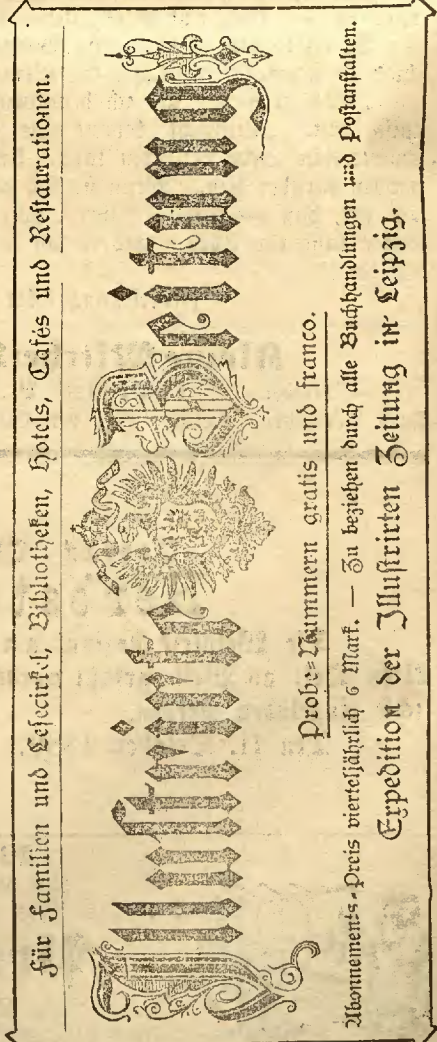 Für Familien und Lesecirkel, Bibliotheken, Hotels, Cafés und Restaurationen.
Illustrirte Zeitung
Probe-Nummern gratis und franco.
Abonnements-Preis vierteljährlich 6 Mark. — Zu beziehen durch alle Buchhandlungen und Postanstalten.
Expedition der Illustrirten Zeitung in Leipzig.